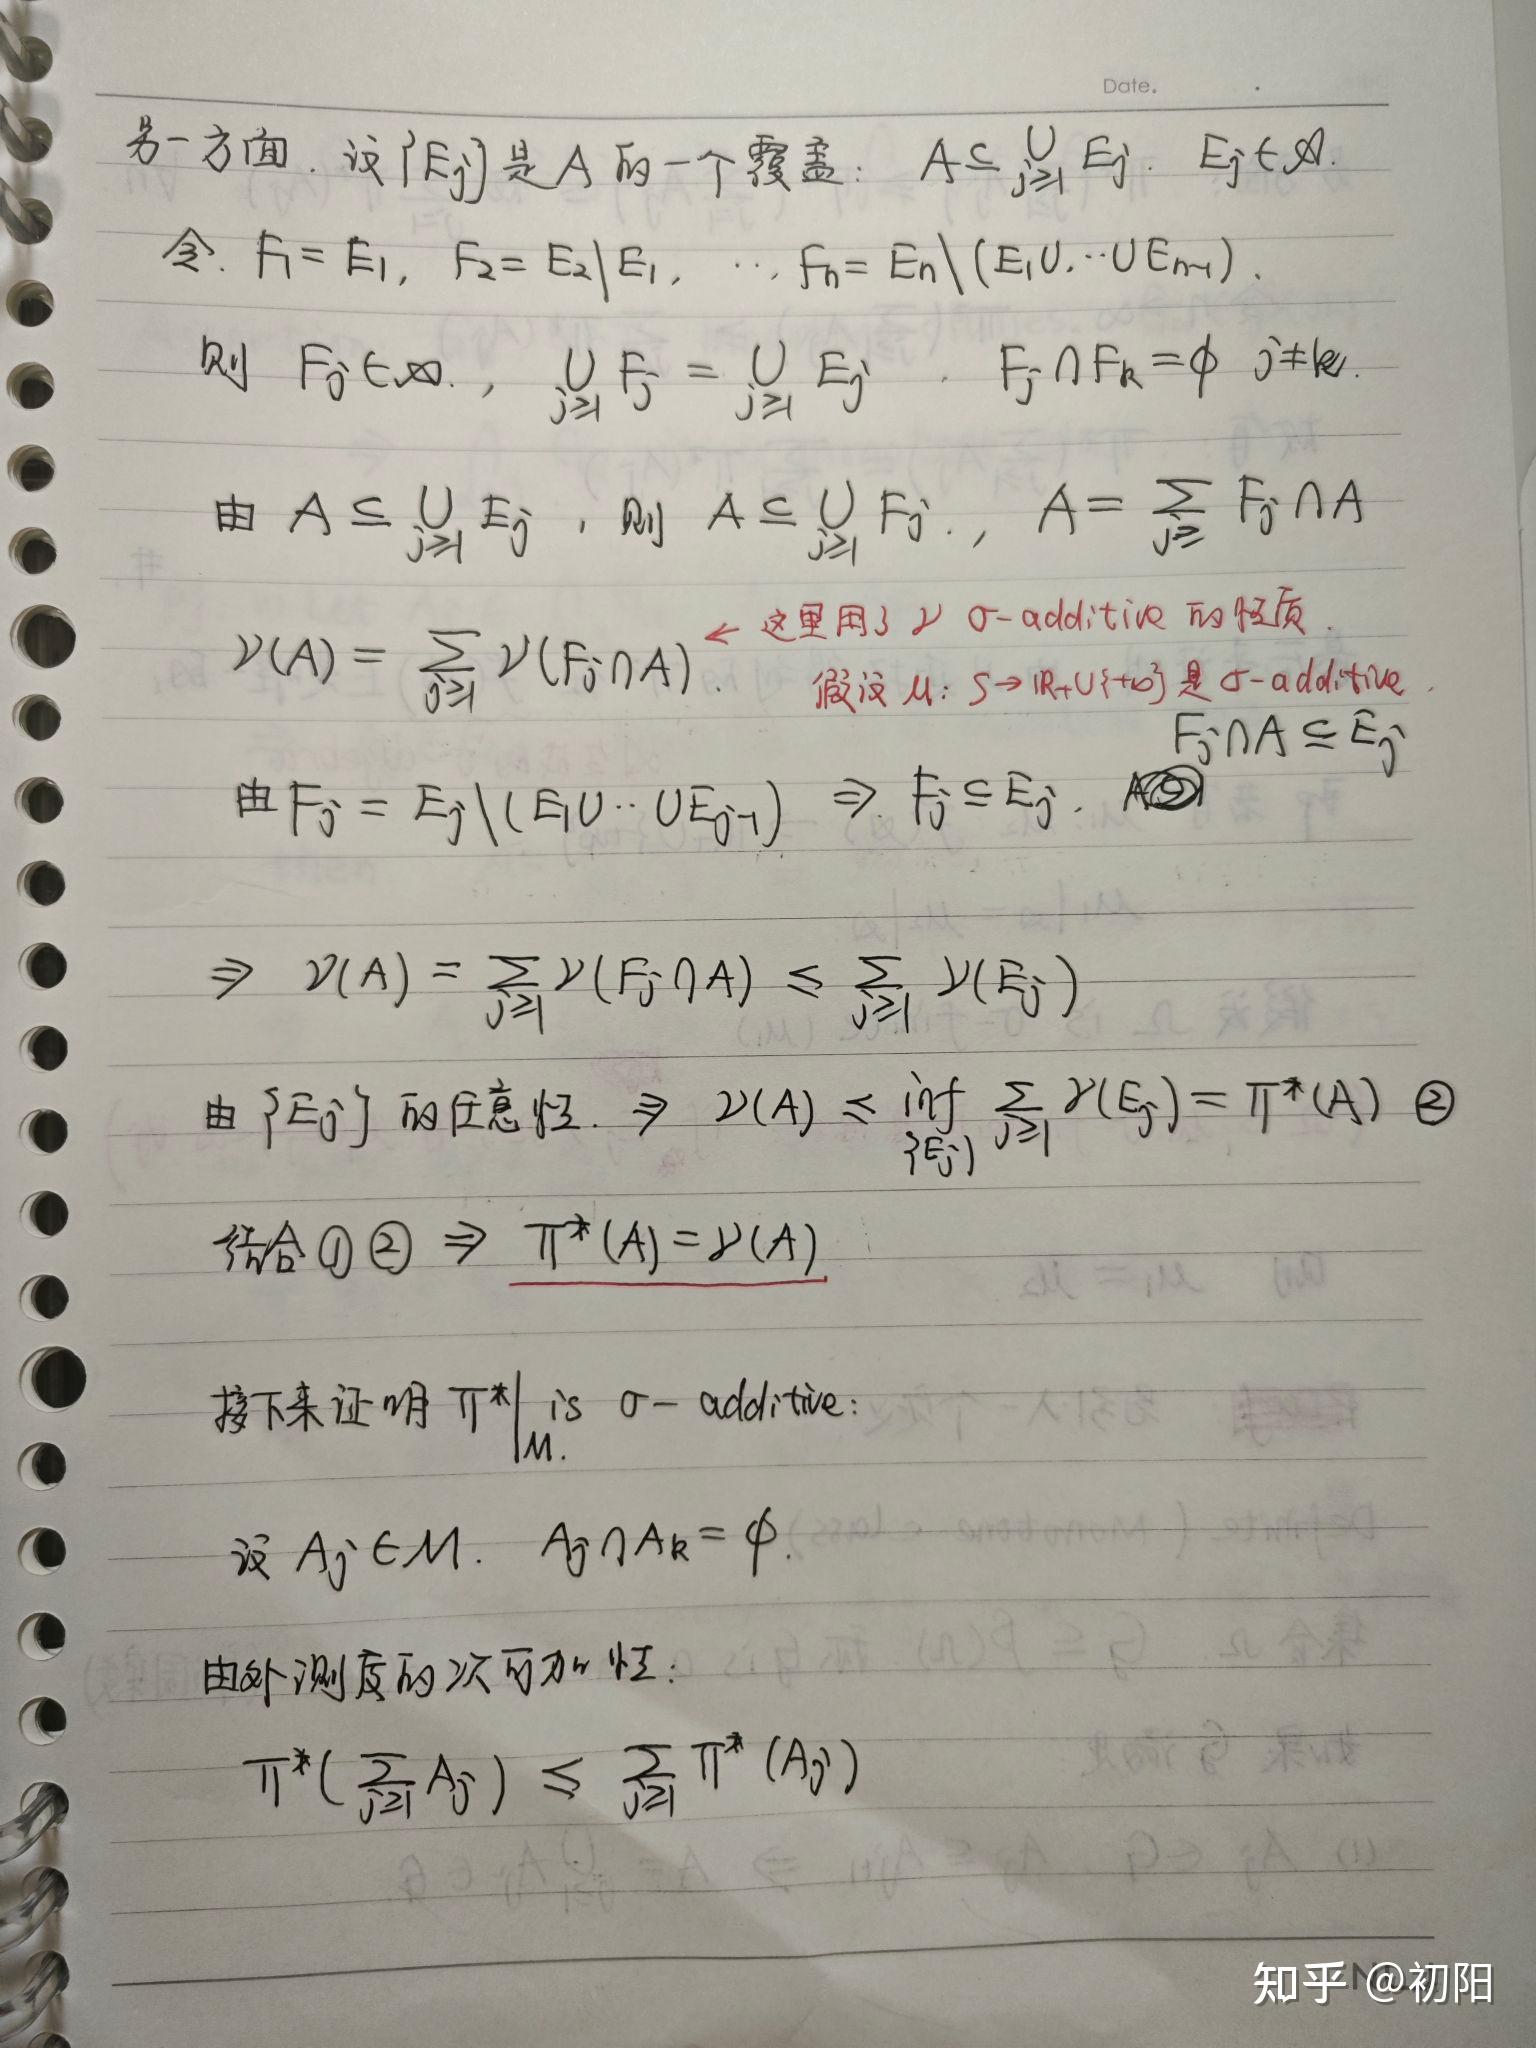 Date.
另一方面. 设{Ej}是A的一个覆盖: A⊆∪_{j≥1} Ej. Ej∈𝒜.
令. F1=E1, F2=E2\E1, ···, Fn=En\(E1∪···∪En-1).
则 Fj∈𝒜., ∪_{j≥1} Fj = ∪_{j≥1} Ej . Fj∩Fk=ϕ j≠k.
由 A⊆∪_{j≥1} Ej , 则 A⊆∪_{j≥1} Fj., A=∑_{j≥} Fj∩A
ν(A)=∑_{j≥1} ν(Fj∩A). ← 这里用了 ν σ-additive 的性质.
假设 μ: S→ℝ+∪{+∞}是 σ-additive.
Fj∩A⊆Ej
由 Fj=Ej\(E1∪··∪Ej-1) ⇒ Fj⊆Ej.
⇒ ν(A)=∑_{j≥1} ν(Fj∩A) ≤ ∑_{j≥1} ν(Ej)
由{Ej}的任意性. ⇒ ν(A) ≤ inf_{{Ej}} ∑_{j≥1} ν(Ej)=π*(A) ②
结合①② ⇒ π*(A)=ν(A)
接下来证明 π*|_M. is σ-additive:
设 Aj∈M. Aj∩Ak=ϕ.
由外测度的次可加性:
π*(∑_{j≥1} Aj) ≤ ∑_{j≥1} π*(Aj)
知乎 @初阳